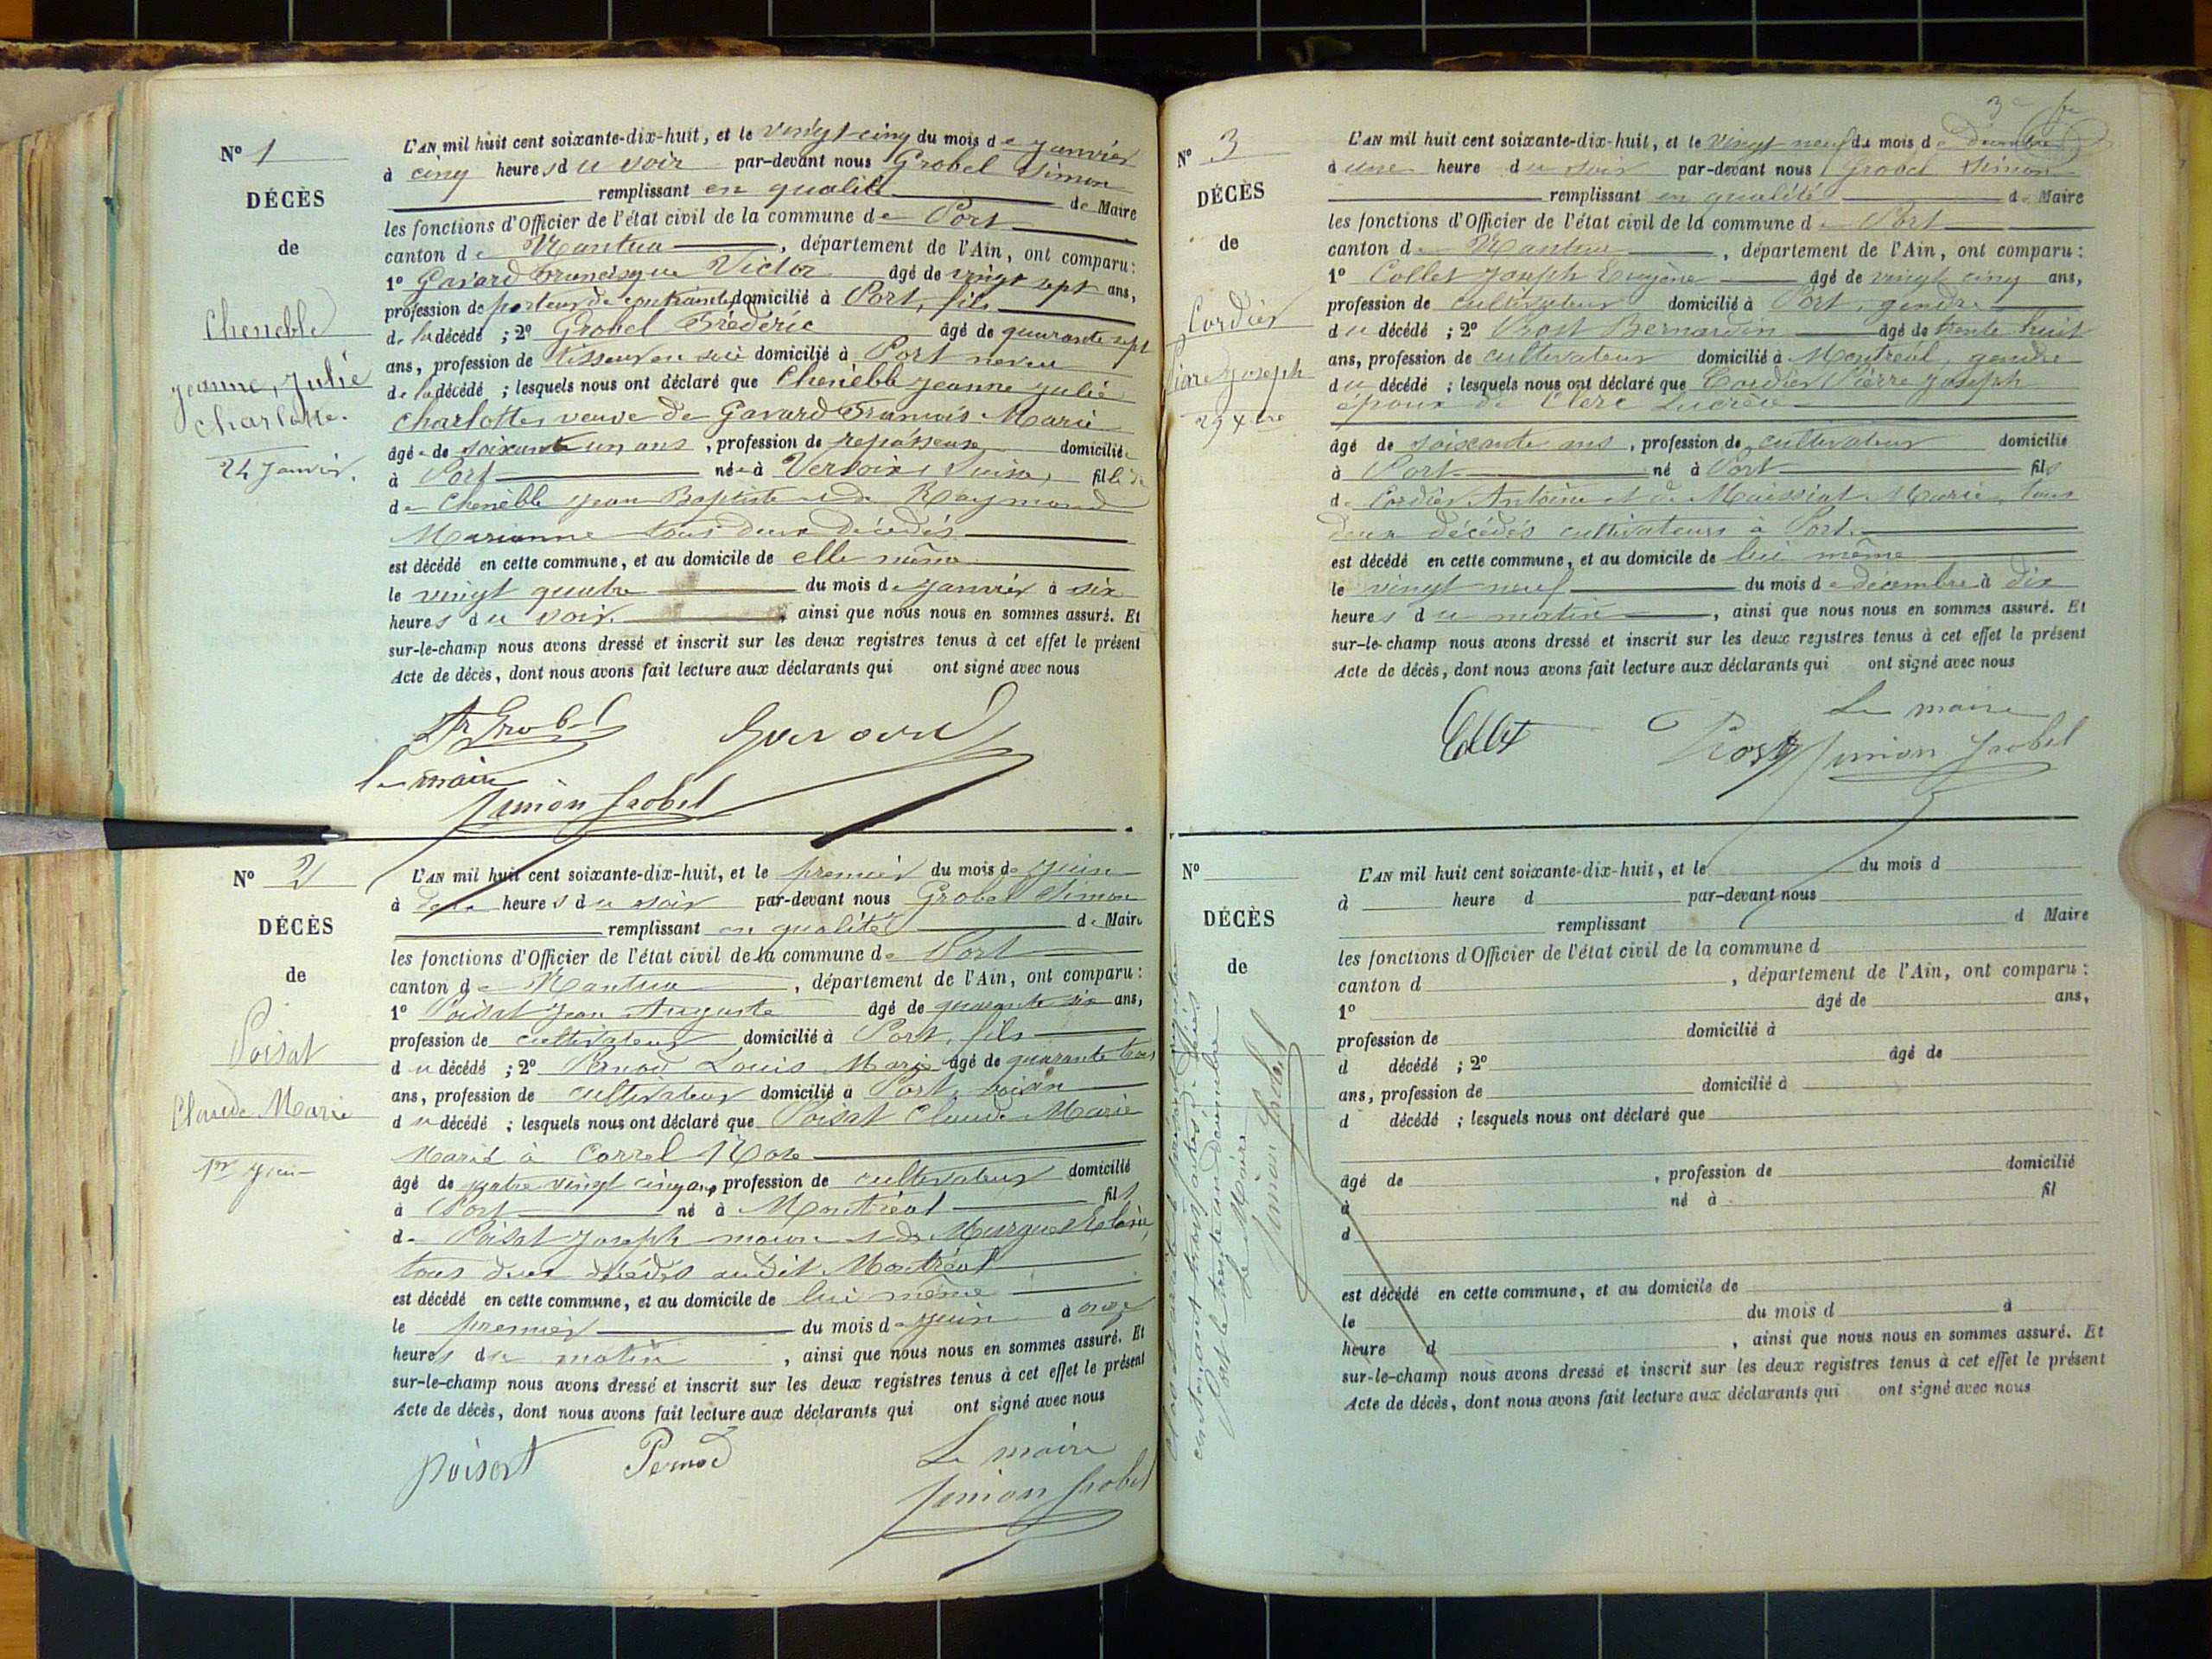 N° 1
DÉCÈS
de
Chenebbe
Jeanne, Julie
Charlotte.
24 Janvier.
L'AN mil huit cent soixante-dix-huit, et le vingt-cinq du mois de Janvier
à cinq heures du soir par-devant nous Grobel Simon
remplissant en qualité de Maire
les fonctions d'Officier de l'état civil de la commune de Port
canton de Nantua, département de l'Ain, ont comparu :
1° Gavard Francisque Victor âgé de vingt sept ans,
profession de porteur de contrainte domicilié à Port, fils
de la décédé ; 2° Grobel Frédéric âgé de quarante sept
ans, profession de tisseur en soie domicilié à Port neveu
de la décédé ; lesquels nous ont déclaré que Chenèbbe Jeanne Julie
Charlotte, veuve de Gavard François Marie
âgée de soixante un ans, profession de repasseuse domiciliée
à Port née à Versoix, Suisse, fille
de Chenèbbe Jean Baptiste et de Raymond
Marianne tous deux décédés
est décédé en cette commune, et au domicile de elle même
le vingt quatre du mois de Janvier à six
heures du soir, ainsi que nous nous en sommes assuré. Et
sur-le-champ nous avons dressé et inscrit sur les deux registres tenus à cet effet le présent
Acte de décès, dont nous avons fait lecture aux déclarants qui ont signé avec nous
Fr Grobel Gavard
le maire
Simon Grobel
N° 2
DÉCÈS
de
Poisat
Claude Marie
1er Juin
L'AN mil huit cent soixante-dix-huit, et le premier du mois de Juin
à deux heures du soir par-devant nous Grobel Simon
remplissant en qualité de Maire
les fonctions d'Officier de l'état civil de la commune de Port
canton de Nantua, département de l'Ain, ont comparu :
1° Poisat Jean Auguste âgé de quarante six ans,
profession de cultivateur domicilié à Port, fils
du décédé ; 2° Pernod Louis Marie âgé de quarante trois
ans, profession de cultivateur domicilié à Port, voisin
du décédé ; lesquels nous ont déclaré que Poisat Claude Marie
Marié à Correl Rose
âgé de quatre vingt cinq ans, profession de cultivateur domicilié
à Port né à Montréal fils
de Poisat Joseph maçon et de
tous deux décédés audit Montréal
est décédé en cette commune, et au domicile de lui même
le premier du mois de Juin à onze
heures du matin, ainsi que nous nous en sommes assuré. Et
sur-le-champ nous avons dressé et inscrit sur les deux registres tenus à cet effet le présent
Acte de décès, dont nous avons fait lecture aux déclarants qui ont signé avec nous
Poisat Pernod Le maire
Simon Grobel
N° 3
DÉCÈS
de
Cordier
Pierre Joseph
29 Xbre
L'AN mil huit cent soixante-dix-huit, et le vingt neuf du mois de décembre
à une heure du soir par-devant nous Grobel Simon
remplissant en qualité de Maire
les fonctions d'Officier de l'état civil de la commune de Port
canton de Nantua, département de l'Ain, ont comparu :
1° Collet Joseph Eugène âgé de vingt cinq ans,
profession de cultivateur domicilié à Port, gendre
du décédé ; 2° Prost Bernardin âgé de trente huit
ans, profession de cultivateur domicilié à Montréal, gendre
du décédé ; lesquels nous ont déclaré que Cordier Pierre Joseph
époux de Clerc Lucrèce
âgé de soixante ans, profession de cultivateur domicilié
à Port né à Port fils
de Cordier Antoine et de Maissiat Marie, tous
deux décédés cultivateurs à Port.
est décédé en cette commune, et au domicile de lui même
le vingt neuf du mois de décembre à dix
heures du matin, ainsi que nous nous en sommes assuré. Et
sur-le-champ nous avons dressé et inscrit sur les deux registres tenus à cet effet le présent
Acte de décès, dont nous avons fait lecture aux déclarants qui ont signé avec nous
Collet Prost Le maire
Simon Grobel
N°
DÉCÈS
de
Clos et arrêté le présent registre
contenant trois actes de décès
Port le trente un décembre
Le Maire
Simon Grobel
L'AN mil huit cent soixante-dix-huit, et le du mois d
à heure d par-devant nous
remplissant d Maire
les fonctions d'Officier de l'état civil de la commune d
canton d , département de l'Ain, ont comparu :
1° âgé de ans,
profession de domicilié à
d décédé ; 2° âgé de
ans, profession de domicilié à
d décédé ; lesquels nous ont déclaré que
âgé de , profession de domicilié
à né à fil
d
est décédé en cette commune, et au domicile de
le du mois d à
heure d , ainsi que nous nous en sommes assuré. Et
sur-le-champ nous avons dressé et inscrit sur les deux registres tenus à cet effet le présent
Acte de décès, dont nous avons fait lecture aux déclarants qui ont signé avec nous